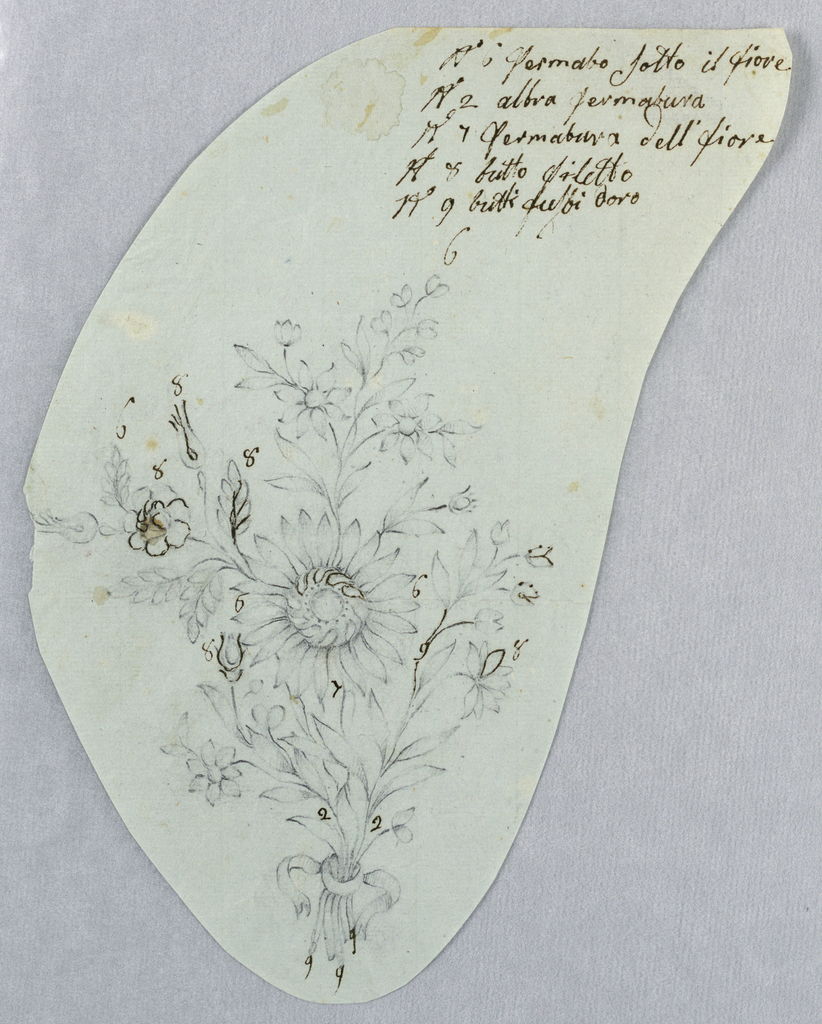 N° 6 fermato sotto il fiore
N° 2 altra fermatura
N° 7 fermatura dell' fiore
N° 8 tutto filetto
N° 9 tutti fusti doro
6
8
6
8
8
6
6
8
9
8
7
2 2
9
9
9